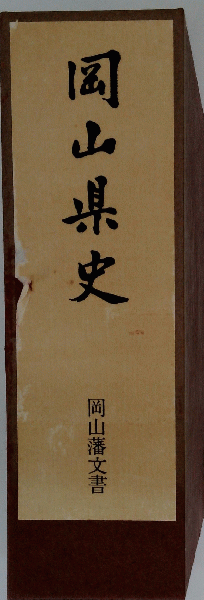 岡山県史
岡山藩文書